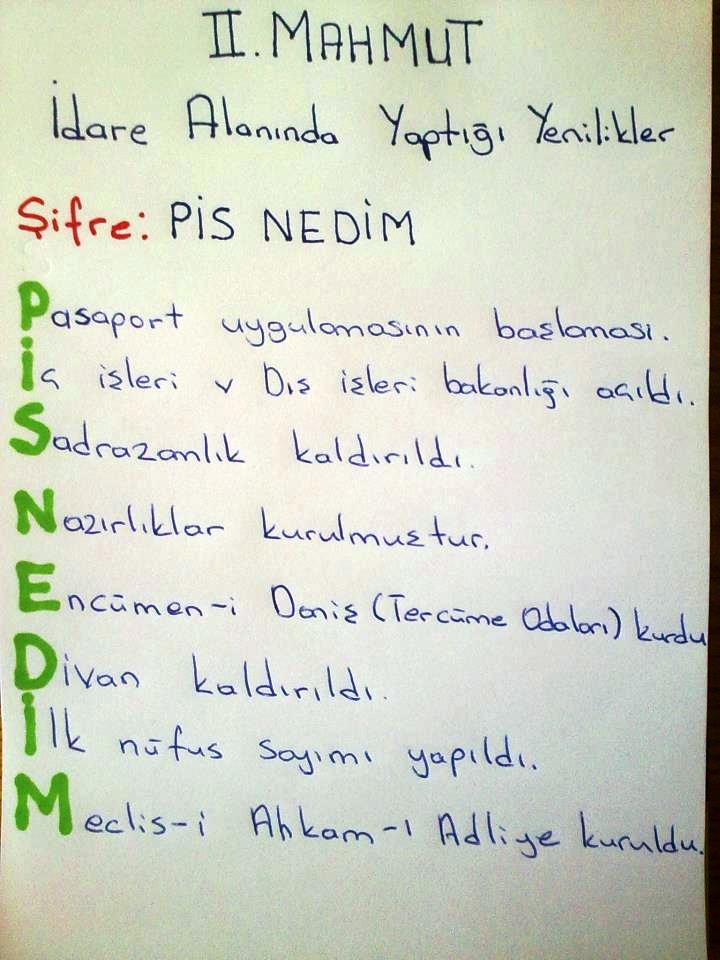 II. MAHMUT
İdare Alanında Yaptığı Yenilikler
Şifre: PİS NEDİM
Pasaport uygulamasının başlaması.
İç işleri v Dış işleri bakanlığı açıldı.
Sadrazanlık kaldırıldı.
Nazırlıklar kurulmuştur.
Encümen-i Daniş (Tercüme Odaları) kurdu
Divan kaldırıldı.
İlk nüfus sayımı yapıldı.
Meclis-i Ahkam-ı Adliye kuruldu.